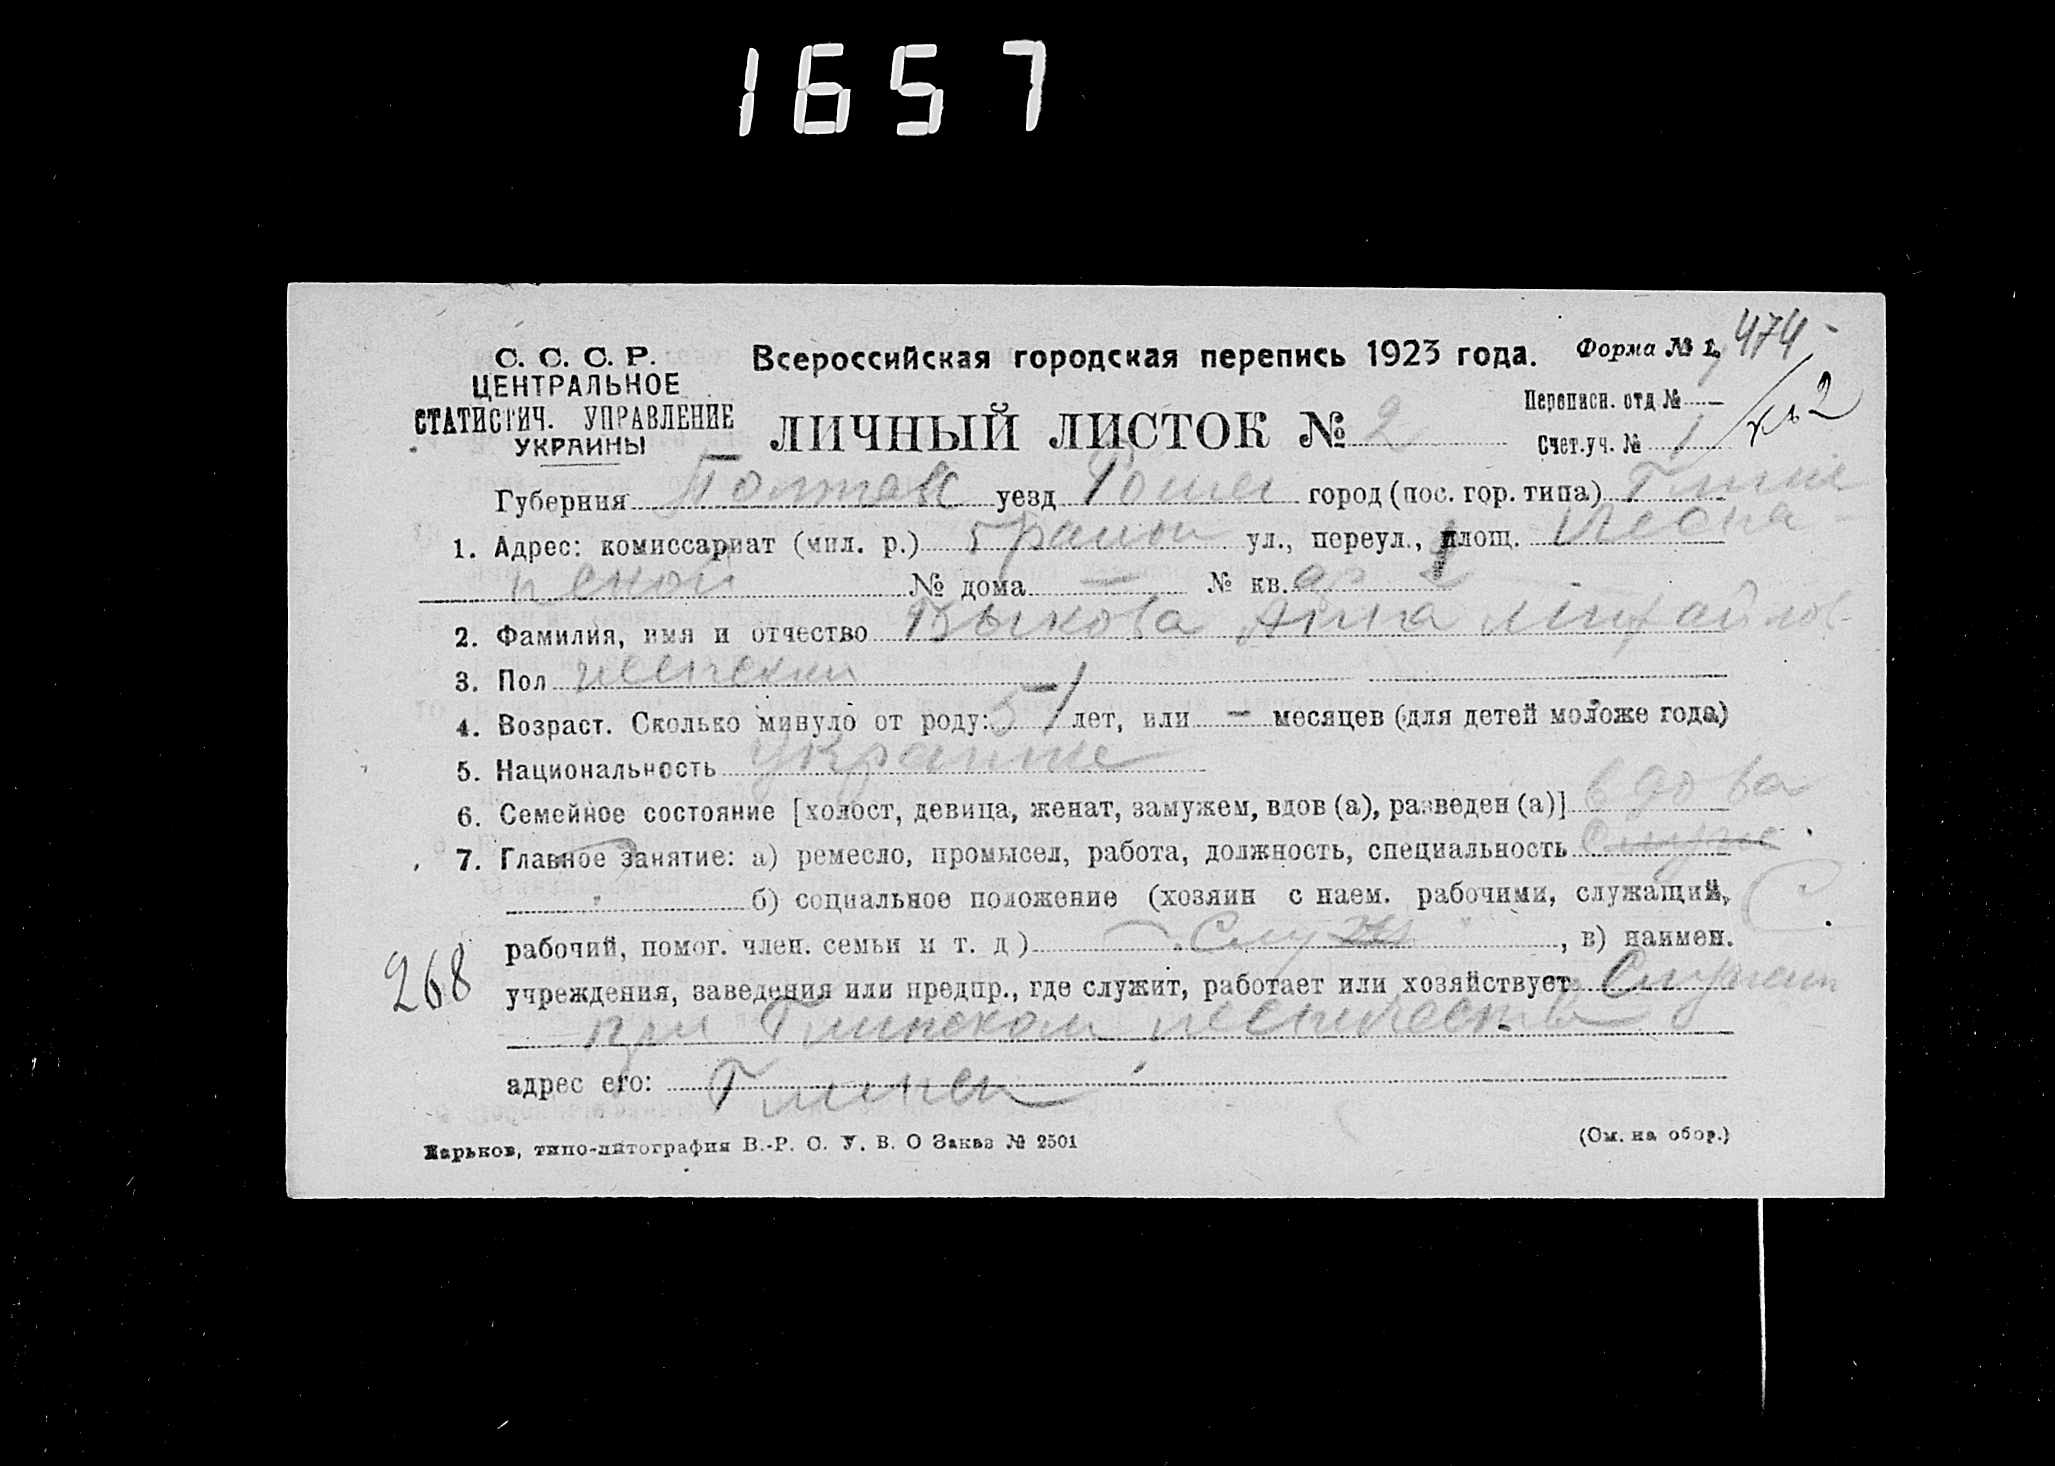 1657
С. С. С. Р. Всероссийская городская перепись 1923 года. Форма № 1, 474
ЦЕНТРАЛЬНОЕ
СТАТИСТИЧ. УПРАВЛЕНИЕ
УКРАИНЫ
ЛИЧНЫЙ ЛИСТОК № 2
Переписн. отд № —
Счет.уч. № 1
Губерния Полтавс уезд Ромен город (пос. гор. типа) Глинс
1. Адрес: комиссариат (мил. р.) 5 район ул., переул., площ.
№ дома — № кв.
2. Фамилия, имя и отчество Быкова Анна Михайлов
3. Пол женский
4. Возраст. Сколько минуло от роду: 51 лет, или — месяцев (для детей моложе года)
5. Национальность украинс
6. Семейное состояние [холост, девица, женат, замужем, вдов (а), разведен (а)] вдова
7. Главное занятие: а) ремесло, промысел, работа, должность, специальность Служ
б) социальное положение (хозяин с наем. рабочими, служащий, С
рабочий, помог. член. семьи и т. д) Служ , в) наимен.
268
учреждения, заведения или предпр., где служит, работает или хозяйствует
при Глинском лесничестве
адрес его: Глинск
Харьков, типо-литография В.-Р. С. У. В. О Заказ № 2501 (См. на обор.)